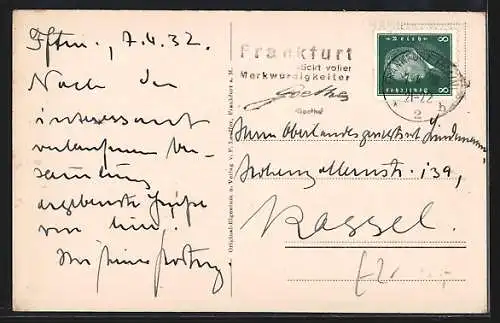 Ffm., 7.4.32.
Nach der
interessant
verlaufenen Ver-
sammlung
ergebenste Grüße
von
Frankfurt
steckt voller
Merkwürdigkeiten
Goethe
(Goethe)
8 Deutsches Reich 8
21-22
* 2 b
Original-Eigentum u. Verlag v. F. Frankfurt a. M.
Herrn Oberlandesgerichtsrat
Hohenzollernstr. 139,
Kassel.